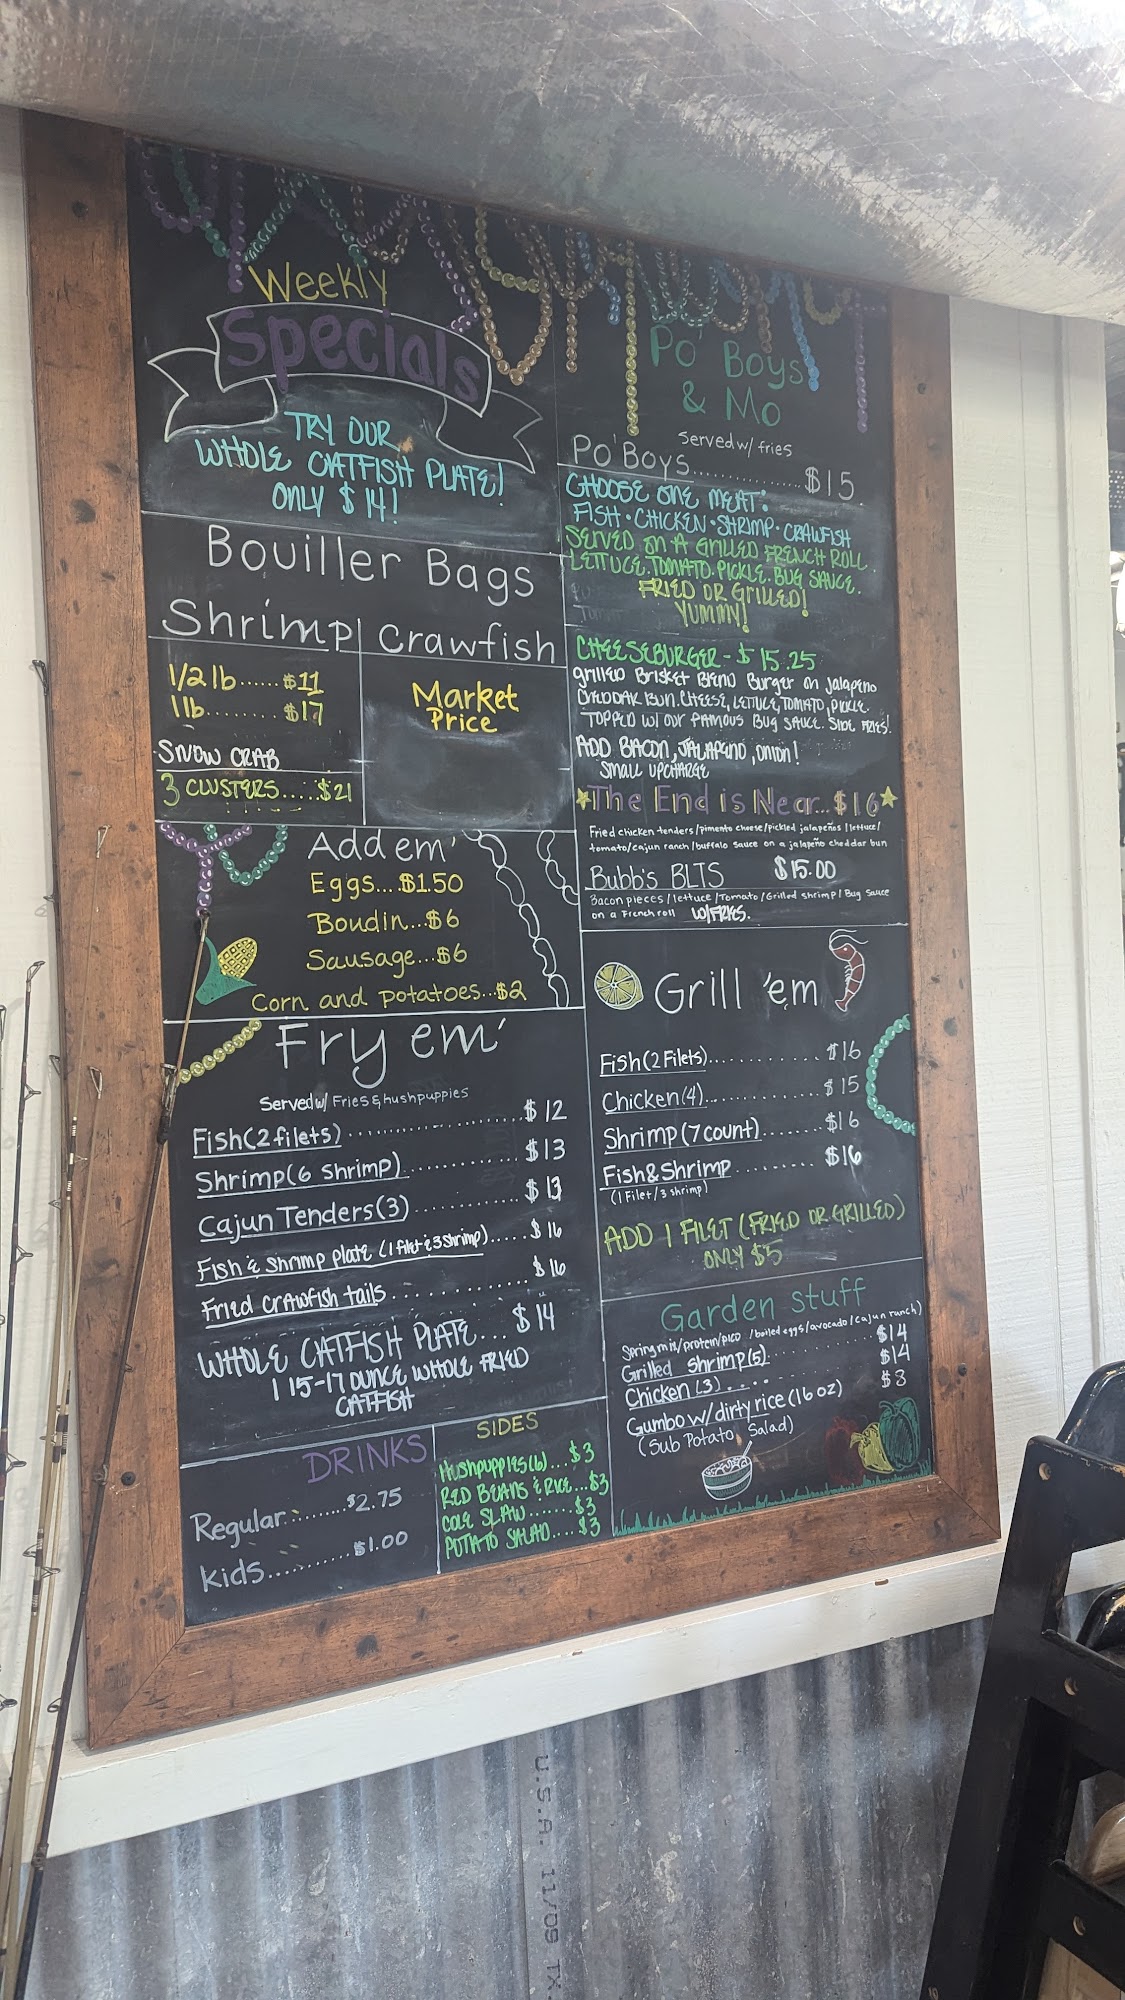 Weekly
Specials
TRY OUR
WHOLE CATFISH PLATE!
ONLY $14!
Bouiller Bags
Shrimp
1/2 lb......$11
1 lb........$17
SNOW CRAB
3 CLUSTERS.....$21
Crawfish
Market
Price
Add em'
Eggs...$1.50
Boudin...$6
Sausage...$6
Corn and potatoes...$2
Fry em'
Served w/ Fries & hushpuppies
Fish (2 filets)..................$12
Shrimp (6 shrimp)..............$13
Cajun Tenders (3)..............$13
Fish & Shrimp plate (1 filet & 3 shrimp).....$16
Fried crawfish tails...............$16
WHOLE CATFISH PLATE...$14
1 15-17 OUNCE WHOLE FRIED
CATFISH
DRINKS
Regular..........$2.75
kids..........$1.00
SIDES
Hushpuppies (6)...$3
RED BEANS & RICE...$3
COLE SLAW.......$3
POTATO SALAD....$3
Po' Boys
& Mo
Served w/ fries
Po'Boys..................$15
CHOOSE ONE MEAT:
FISH • CHICKEN • SHRIMP • CRAWFISH
SERVED ON A GRILLED FRENCH ROLL.
LETTUCE. TOMATO. PICKLE. BUG SAUCE.
FRIED OR GRILLED!
YUMMY!
CHEESEBURGER - $15.25
Grilled Brisket Blend Burger on Jalapeno
CHEDDAR BUN. CHEESE, LETTUCE, TOMATO, PICKLE.
TOPPED W/ OUR FAMOUS BUG SAUCE. SIDE FRIES!
ADD BACON, JALAPENO, ONION!
SMALL UPCHARGE
The End is Near...$16
Fried chicken tenders/pimento cheese/pickled jalapeños/lettuce/
tomato/cajun ranch/buffalo sauce on a jalapeño cheddar bun
Bubb's BLTS $15.00
Bacon pieces/lettuce/Tomato/Grilled shrimp/Bug Sauce
on a French roll W/FRIES.
Grill 'em
Fish (2 Filets)..................$16
Chicken (4)..................$15
Shrimp (7 count)..........$16
Fish & Shrimp...........$16
(1 Filet/3 shrimp)
ADD 1 FILET (FRIED OR GRILLED)
ONLY $5
Garden stuff
Spring mix/protein/pico/boiled eggs/avocado/cajun ranch)
Grilled Shrimp (5)............$14
Chicken (3)....$14
Gumbo w/ dirty rice (16 oz) $8
(Sub Potato Salad)
U.S.A. 11/09 TX.